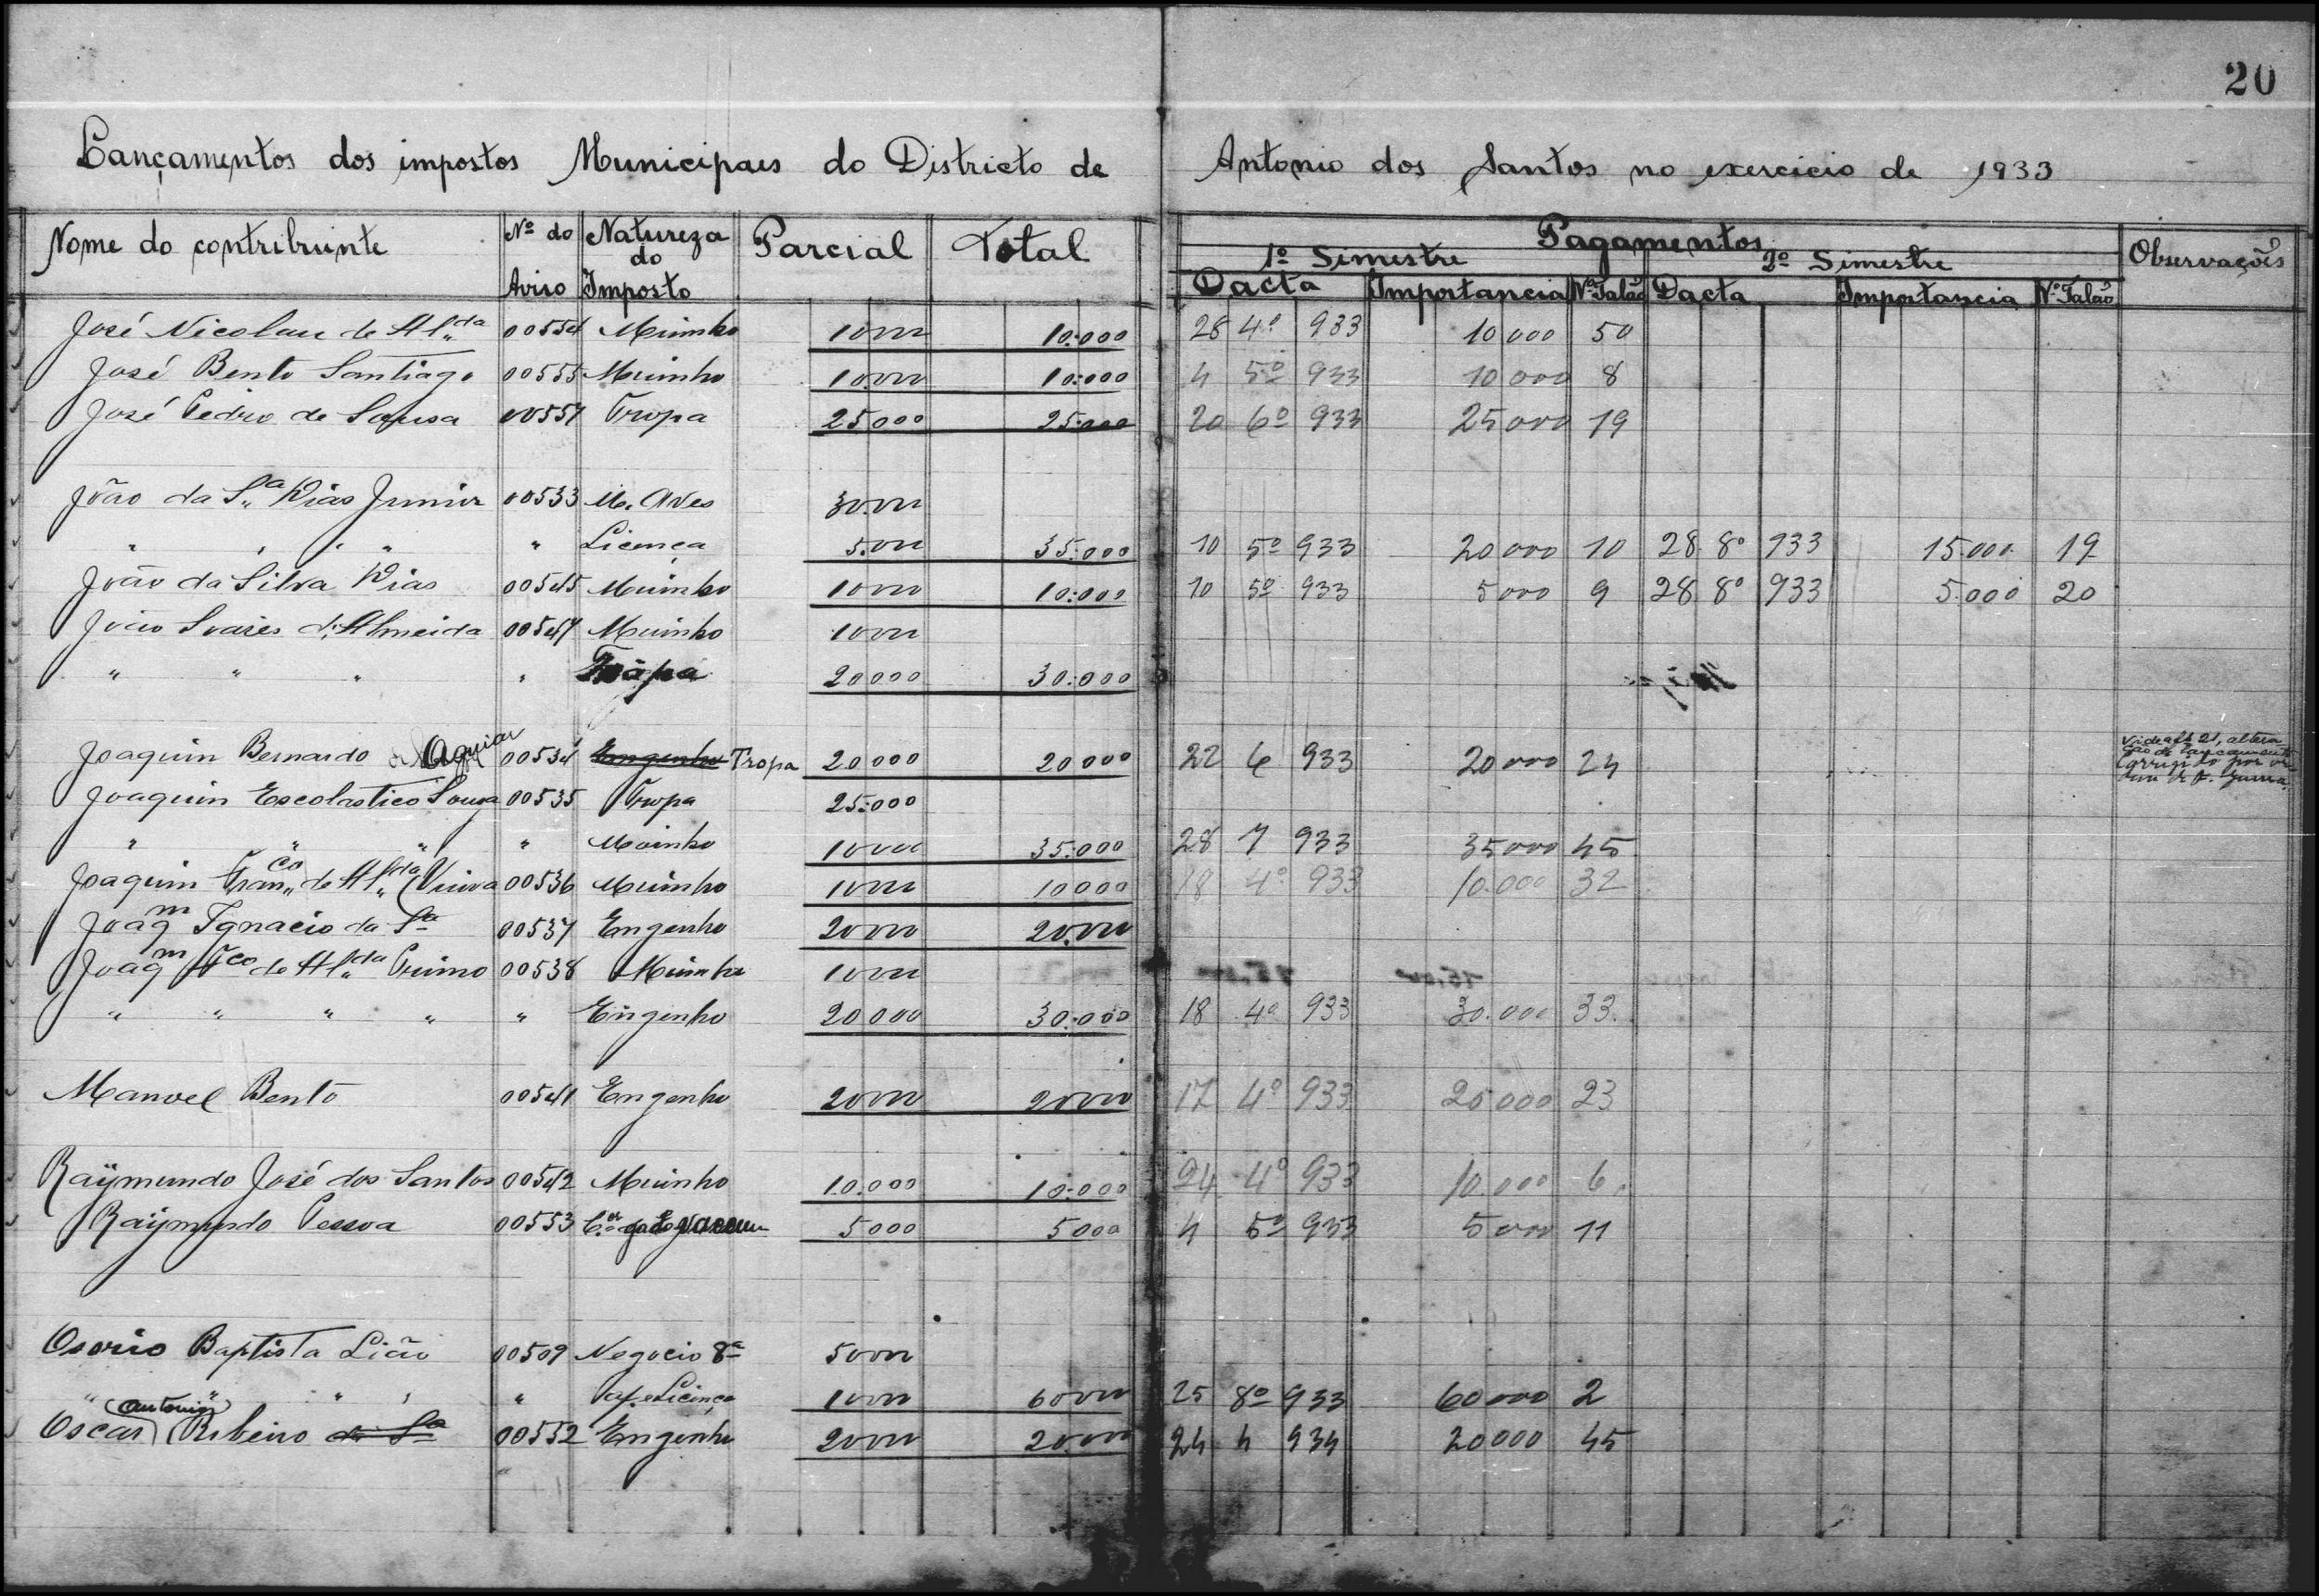 20
Lançamentos dos impostos Municipaes do Districto de Antonio dos Santos no exercicio de 1933
Nome do contribuinte Nº do Aviso Natureza do Imposto Parcial Total Pagamentos Observações
1º Simestre 2º Simestre
Dacta Importancia Nº Talão Dacta Importancia Nº Talão
José Nicolau de Al,,da 00554 Muinho 10000 10:000 28 4º 933 10000 50
José Bento Santiago 00555 Muinho 10.000 10:000 4 5º 933 10000 8
José Pedro de Sousa 00557 Tropa 25.000 25:000 20 6º 933 25000 19
João da S,,a Dias Junior 00533 M. Aves 30.000
" " " " " Licença 5.000 35:000 10 5º 933 20000 10 28 8º 933 15.000 19
João da Silva Dias 00545 Muinho 10000 10:000 10 5º 933 5000 9 28 8º 933 5.000 20
João Soares d'Almeida 00547 Muinho 10000
" " " " Tropa 20000 30:000
Joaquim Bernardo d'Aguiar 00534 Engenho Tropa 20000 20000 22 6 933 20000 24
Joaquim Escolastico Sousa 00535 Tropa 25:000
" " " " Moinho 10000 35:000 28 7 933 35000 45
Joaquim Fran,,co de Al,,da (Viuva 00536 Muinho 10000 10000 18 4º 933 10.000 32
Joaqm Ignacio da Sa 00537 Engenho 20000 20.000
Joaqm Fco de Al,,da Primo 00538 Muinho 10000
" " " " " Engenho 20000 30:000 18 4º 933 30.000 33
Manoel Bento 00541 Engenho 20000 20000 17 4º 933 20000 23
Raymundo José dos Santos 00542 Muinho 10.000 10:000 24 4º 933 10.000 6
Raymundo Pessoa 00553 gado vaccum 5000 5000 4 5º 933 5000 11
Osorio Baptista Lião 00509 Negocio 8ª 50000
" " " " " Licença 10000 60000 25 8º 933 60000 2
Oscar (Antonio) Ribeiro da Sa 00552 Engenho 20000 20.000 24 4 934 20000 45